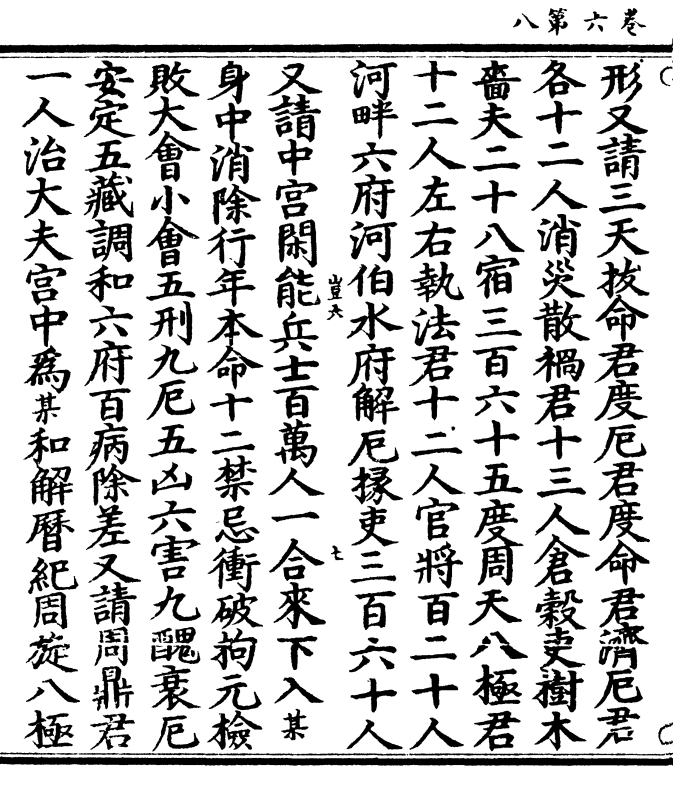 卷六第八
形又請三天拔命君度厄君度命君濟厄君
各十二人消災散禍君十三人倉穀吏樹木
嗇夫二十八宿三百六十五度周天八極君
十二人左右執法君十二人官將百二十人
河畔六府河伯水府解厄掾吏三百六十人
又請中宮閑能豈天兵士百萬人一合七來下入某
身中消除行年本命十二禁忌衝破拘元檢
敗大會小會五刑九厄五凶六害九醜衰厄
安定五藏調和六府百病除差又請周鼎君
一人治大夫宮中為某和解曆紀周旋八極